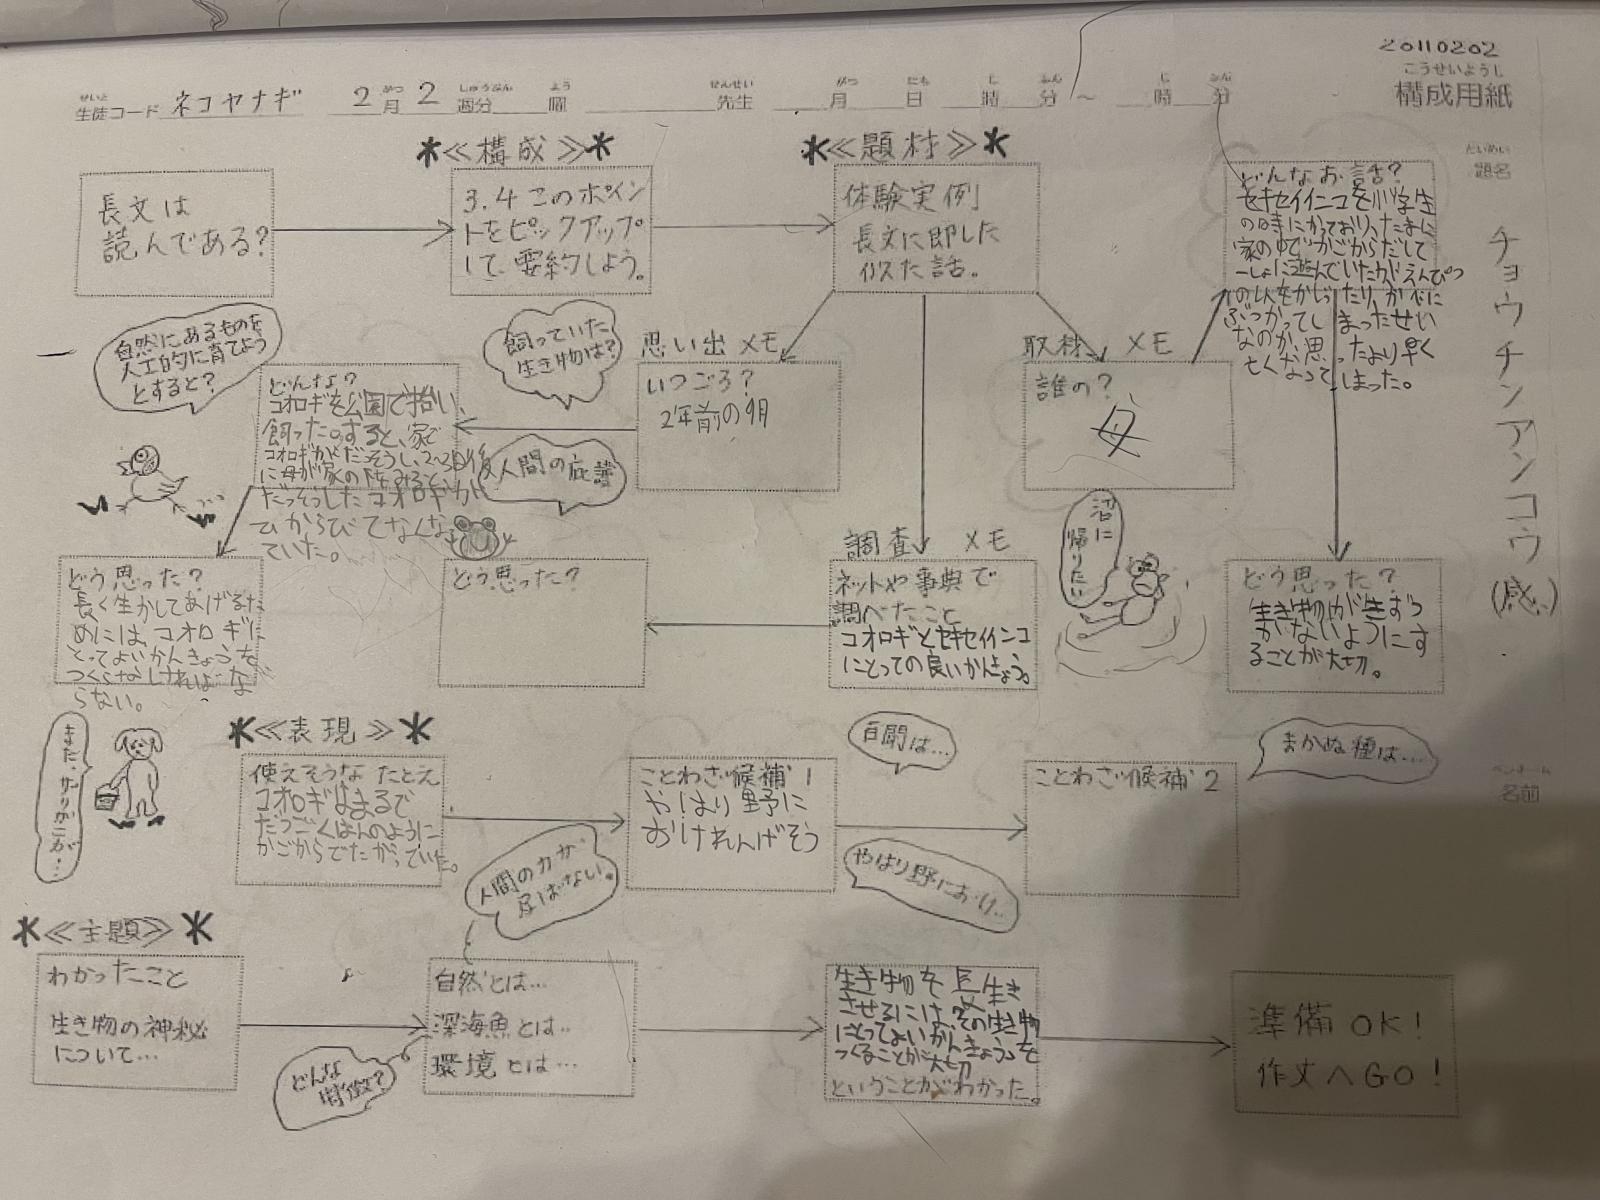 20110202
こうせいようし
構成用紙
せいと
生徒コード ネコヤナギ 2月2週分 曜 先生 月 日 時 分 ~ 時 分
がつ しゅうぶん よう せんせい がつ にち じ ふん じ ふん
だいめい
題名
チョウチンアンコウ(感)
ペンネーム
名前
*≪構成≫*
長文は
読んである?
3.4このポイン
トをピックアップ
して、要約しよう。
*≪題材≫*
体験実例
長文に即した
似た話。
どんなお話?
セキセイインコを小学生
の時にかっており、たまに
家の中でかごからだして
一しょに遊んでいたが、えんぴつ
のしんをかじったり、かべに
ぶつかってしまったせい
なのか、思ったより早く
亡くなってしまった。
自然にあるものを
人工的に育てよう
とすると?
飼っていた
生き物は?
思い出メモ
いつごろ?
2年前の9月
取材メモ
誰の?
母
どんな?
コオロギを公園で拾い、
飼った。すると、家で
コオロギがだっそうし、2~3日後
に母が家の
だっそうしたコオロギが
ひからびてなくな
ていた。
人間の庇護
沼に
帰りたい
どう思った?
長く生かしてあげるた
めには、コオロギに
とってよいかんきょうを
つくらなければな
らない。
どう思った?
調査メモ
ネットや事典で
調べたこと
コオロギとセキセイインコ
にとっての良いかんきょう。
どう思った?
生き物が
ないようにす
ることが大切。
また、ザリガニが…
*≪表現≫*
使えそうなたとえ
コオロギはまるで
だつごくはんのように
かごからでたがっていた。
ことわざ候補1
やはり野に
おけれんげそう
百聞は…
ことわざ候補2
まかぬ種は…
人間の力が
及ばない。
やはり野におけ…
*≪主題≫*
わかったこと
生き物の神秘
について…
自然とは…
深海魚とは…
環境とは…
どんな
特徴?
生き物を長生き
させるには、その生き物
にとってよいかんきょうを
つくることが大切
ということがわかった。
準備OK!
作文へGO!